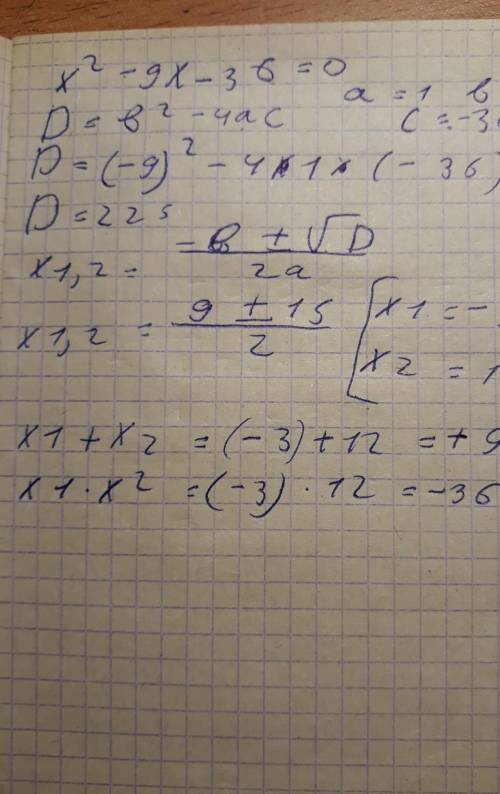 x² - 9x - 36 = 0
a = 1 b
D = b² - 4ac c = -3
D = (-9)² - 4 × 1 × (-36)
D = 225
x1,2 = -b ± √D / 2a
x1,2 = 9 ± 15 / 2 [ x1 = -
x2 = 1
x1 + x2 = (-3) + 12 = +9
x1 · x2 = (-3) · 12 = -36